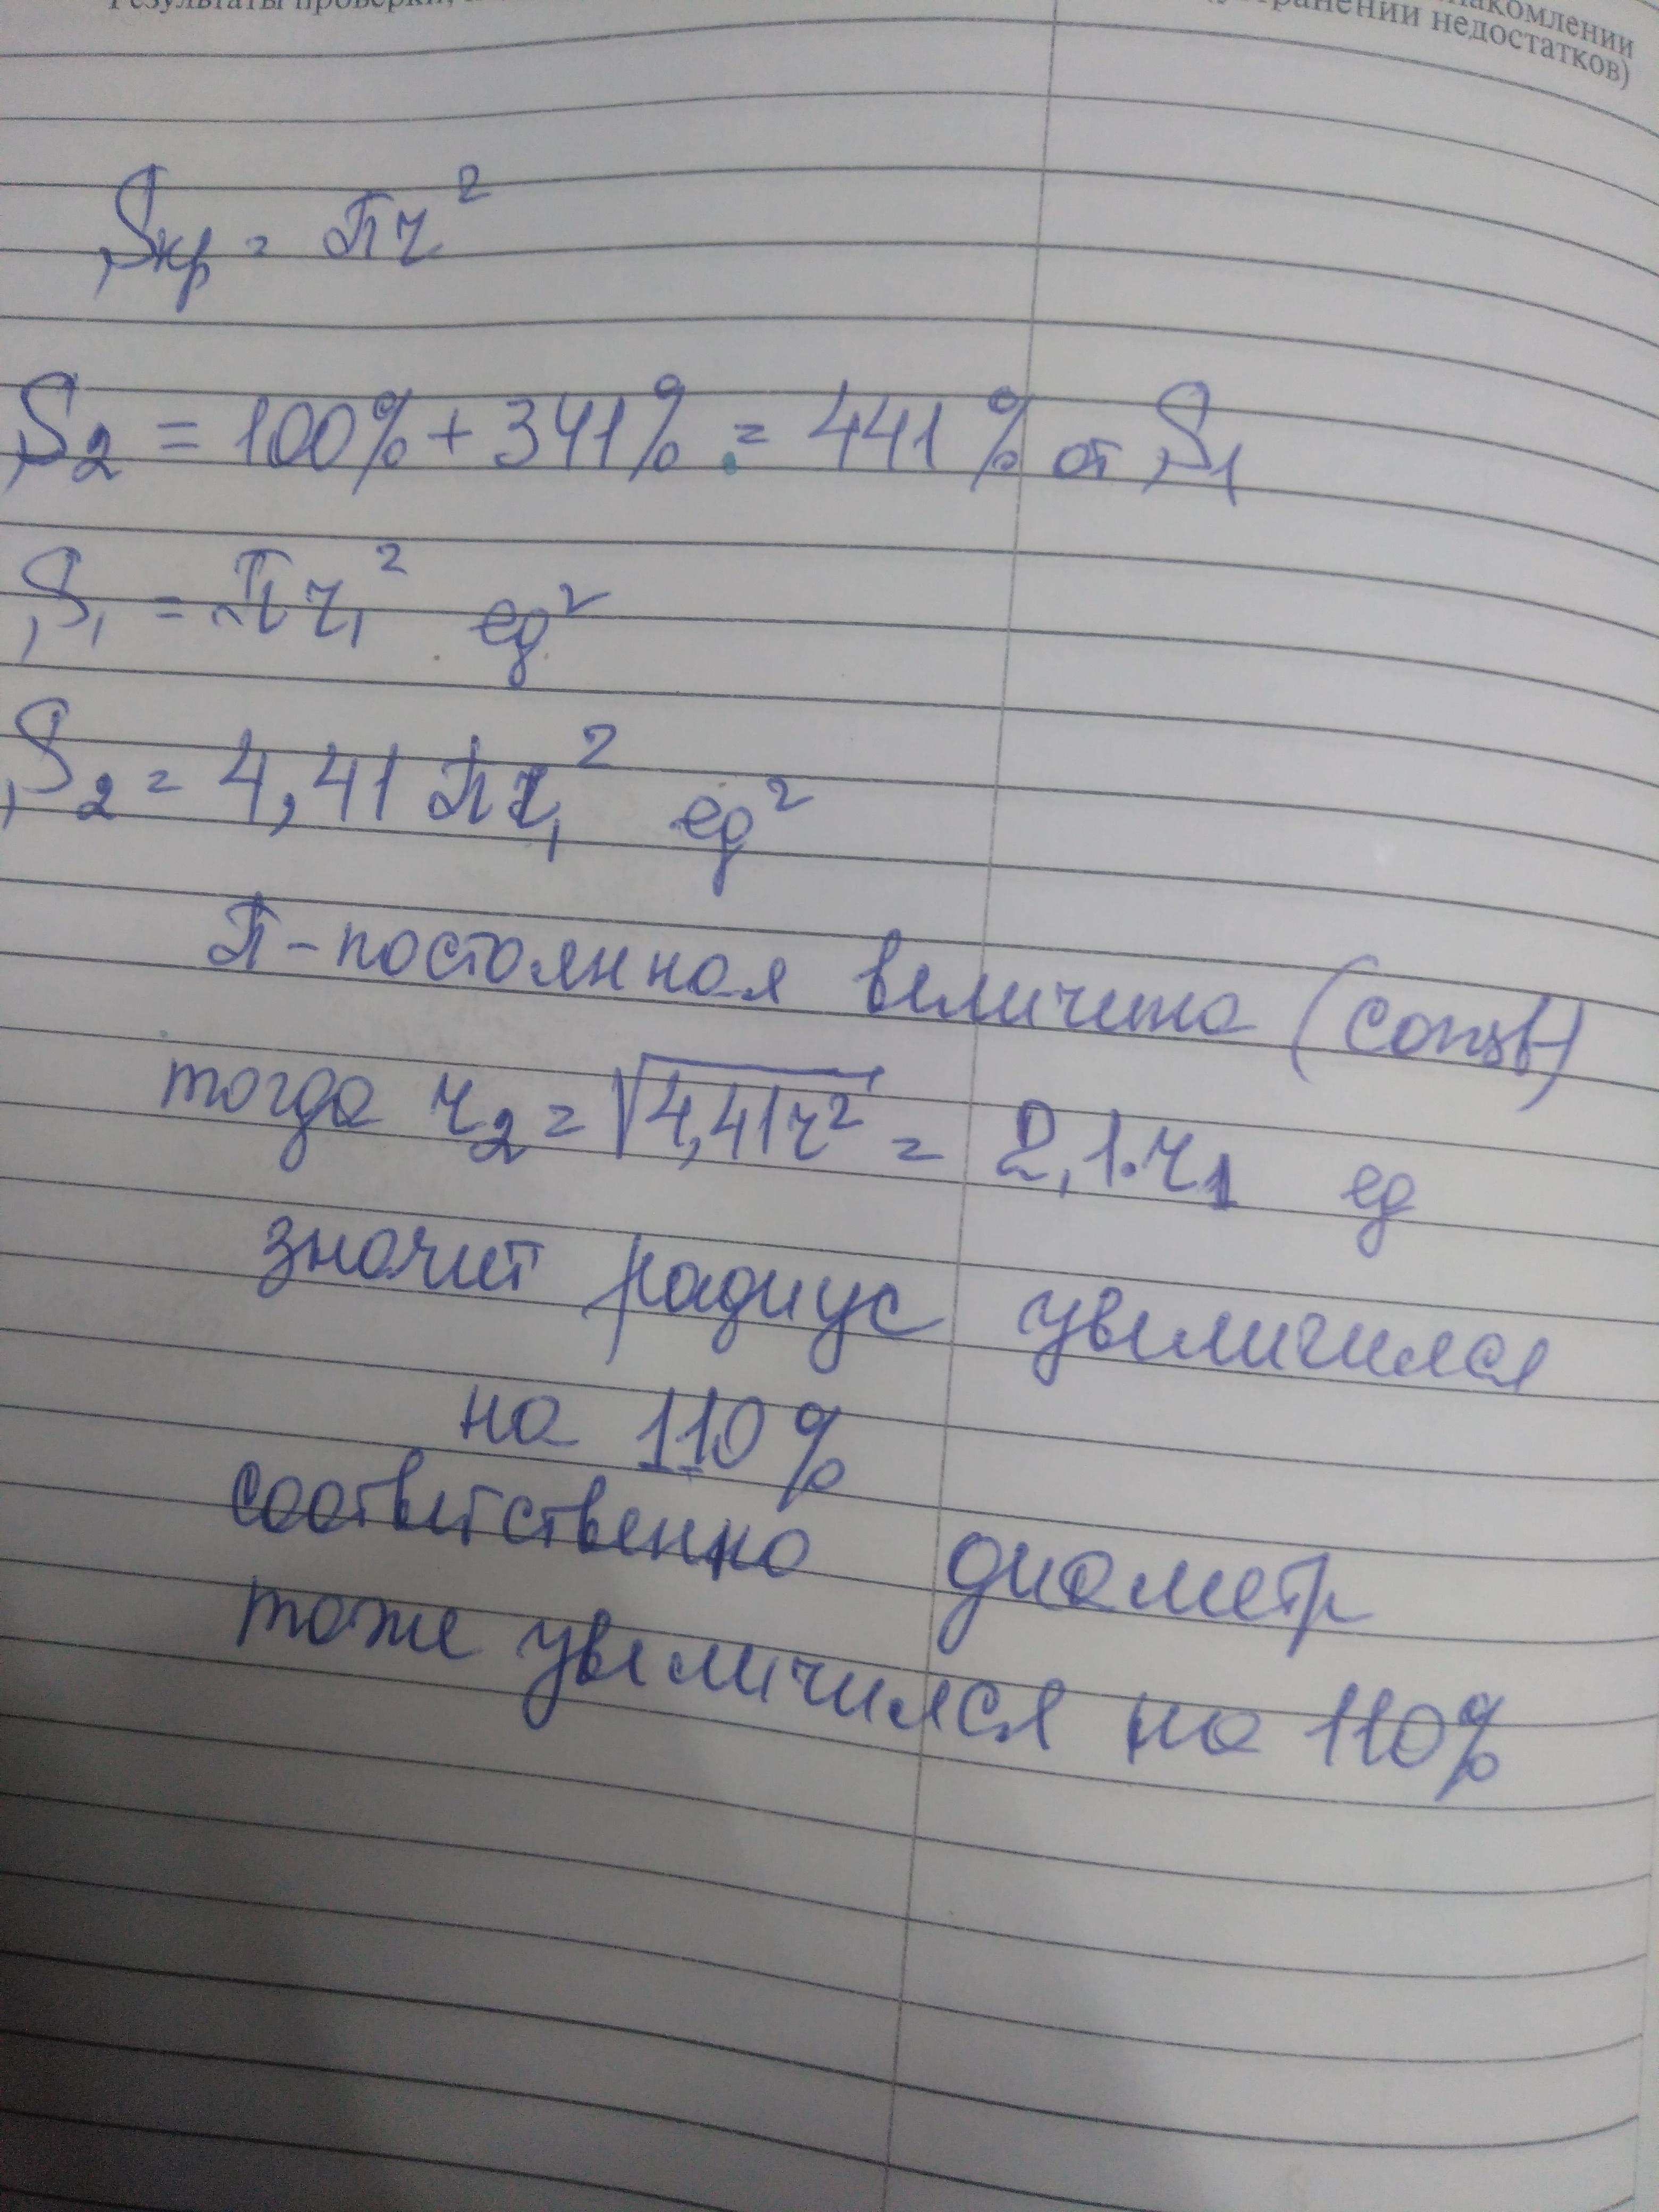 Результаты проверки,
накомлении
устранении недостатков)
Sкр = πr²
S₂ = 100% + 341% = 441% от S₁
S₁ = πr₁² ед²
S₂ = 4,41 πr₁² ед²
π - постоянная величина (const)
тогда r₂ = √4,41r² = 2,1·r₁ ед
значит радиус увеличился
на 110%
соответственно диаметр
тоже увеличился на 110%